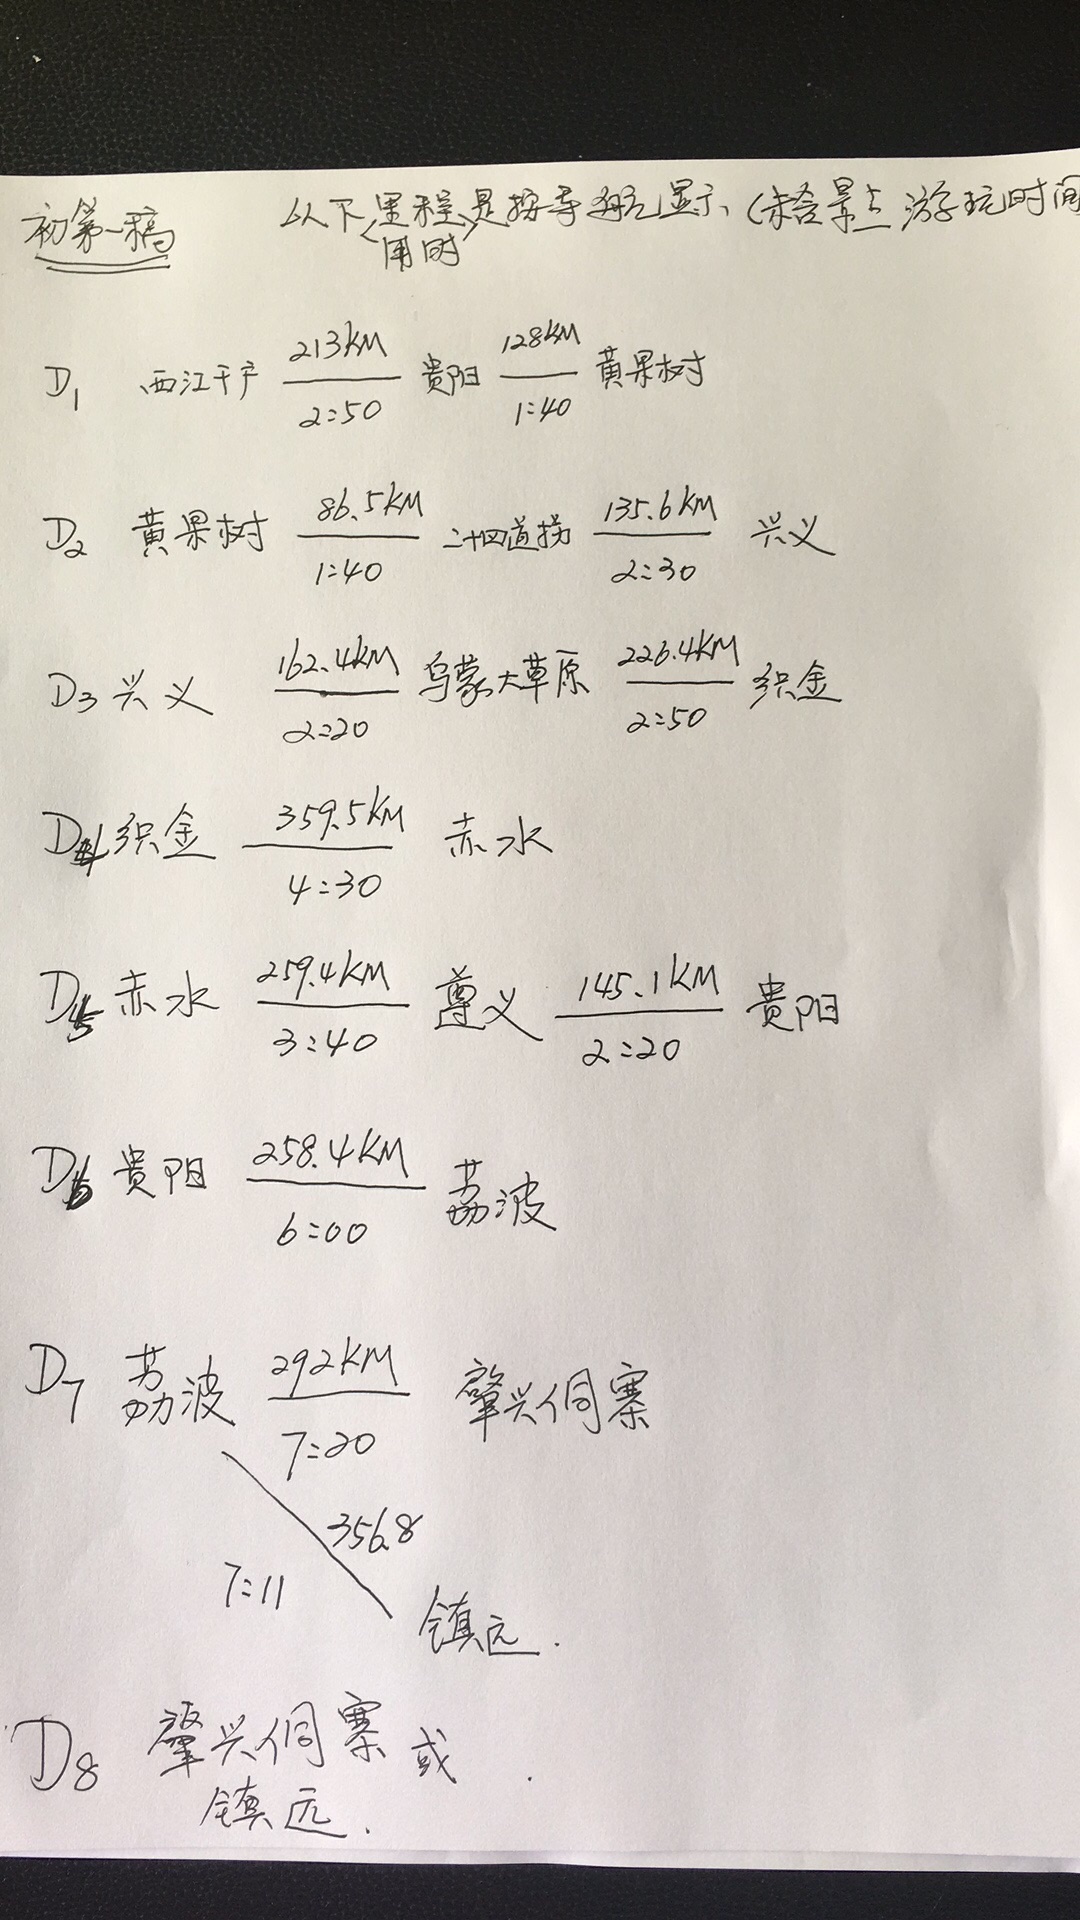 初第一稿 以下里程是按导航显示(未含景点游玩时间
用时
D1 西江千户 213KM 贵阳 128KM 黄果树
2:50 1:40
D2 黄果树 86.5KM 二十四道拐 135.6KM 兴义
1:40 2:30
D3 兴义 162.4KM 乌蒙大草原 226.4KM 织金
2:20 2:50
D4 织金 359.5KM 赤水
4:30
D5 赤水 259.4KM 遵义 145.1KM 贵阳
3:40 2:20
D6 贵阳 258.4KM 荔波
6:00
D7 荔波 292KM 肇兴侗寨
7:20
356.8
7:11
镇远.
D8 肇兴侗寨 或
镇远.